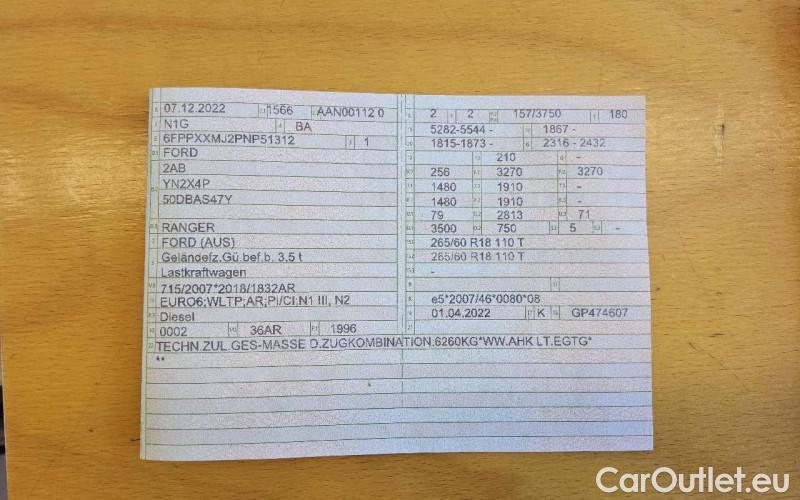 07.12.2022 1566 AAN00112 0
N1G BA
6FPPXXMJ2PNP51312 1
FORD
2AB
YN2X4P
50DBAS47Y
RANGER
FORD (AUS)
Geländefz.Gü.bef.b. 3,5 t
Lastkraftwagen
715/2007*2018/1832AR
EURO6;WLTP;AR;PI/CI;N1 III, N2
Diesel
0002 36AR 1996
2 2 157/3750 180
5282-5544 - 1867 -
1815-1873 - 2316 - 2432
210 -
256 3270 3270
1480 1910 -
1480 1910 -
79 2813 71
3500 750 5 -
265/60 R18 110 T
265/60 R18 110 T
-
e5*2007/46*0080*08
01.04.2022 K GP474607
TECHN.ZUL.GES-MASSE D.ZUGKOMBINATION.6260KG*WW.AHK LT.EGTG*
**
CarOutlet.eu